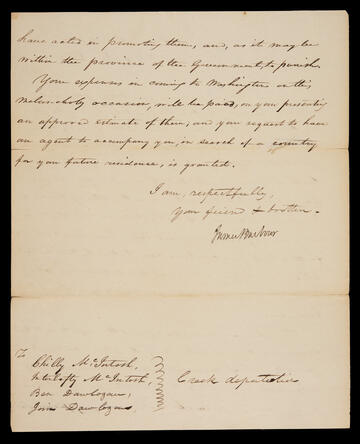 have acted in promoting them, and, as it may be
within the province of the Government, to punish.
Your expenses in coming to Washington on this
melancholy occasion, will be paid, on your presenting
an approved estimate of them; and your request to have
an agent to accompany you, in search of a country
for your future residence, is granted.
I am, respectfully,
Your friend & brother.
James Barbour
To
Chilly McIntosh,
Interlifty McIntosh,
Ben Dawlogan,
Join Dawlogan
Creek deputation